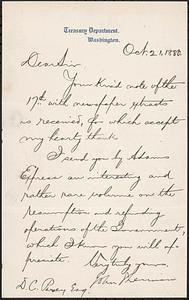 Treasury Department.
Washington.
Oct. 21, 1888
Dear Sir
Your kind note of the
17th. with newspaper extracts
is received, for which accept
my hearty thanks
I send you by Adams
Express an interesting and
rather rare volume on the
resumption and refunding
operations of the Government,
which I know you will ap-
preciate.
Very truly yours,
John Sherman
D.C. Esq.